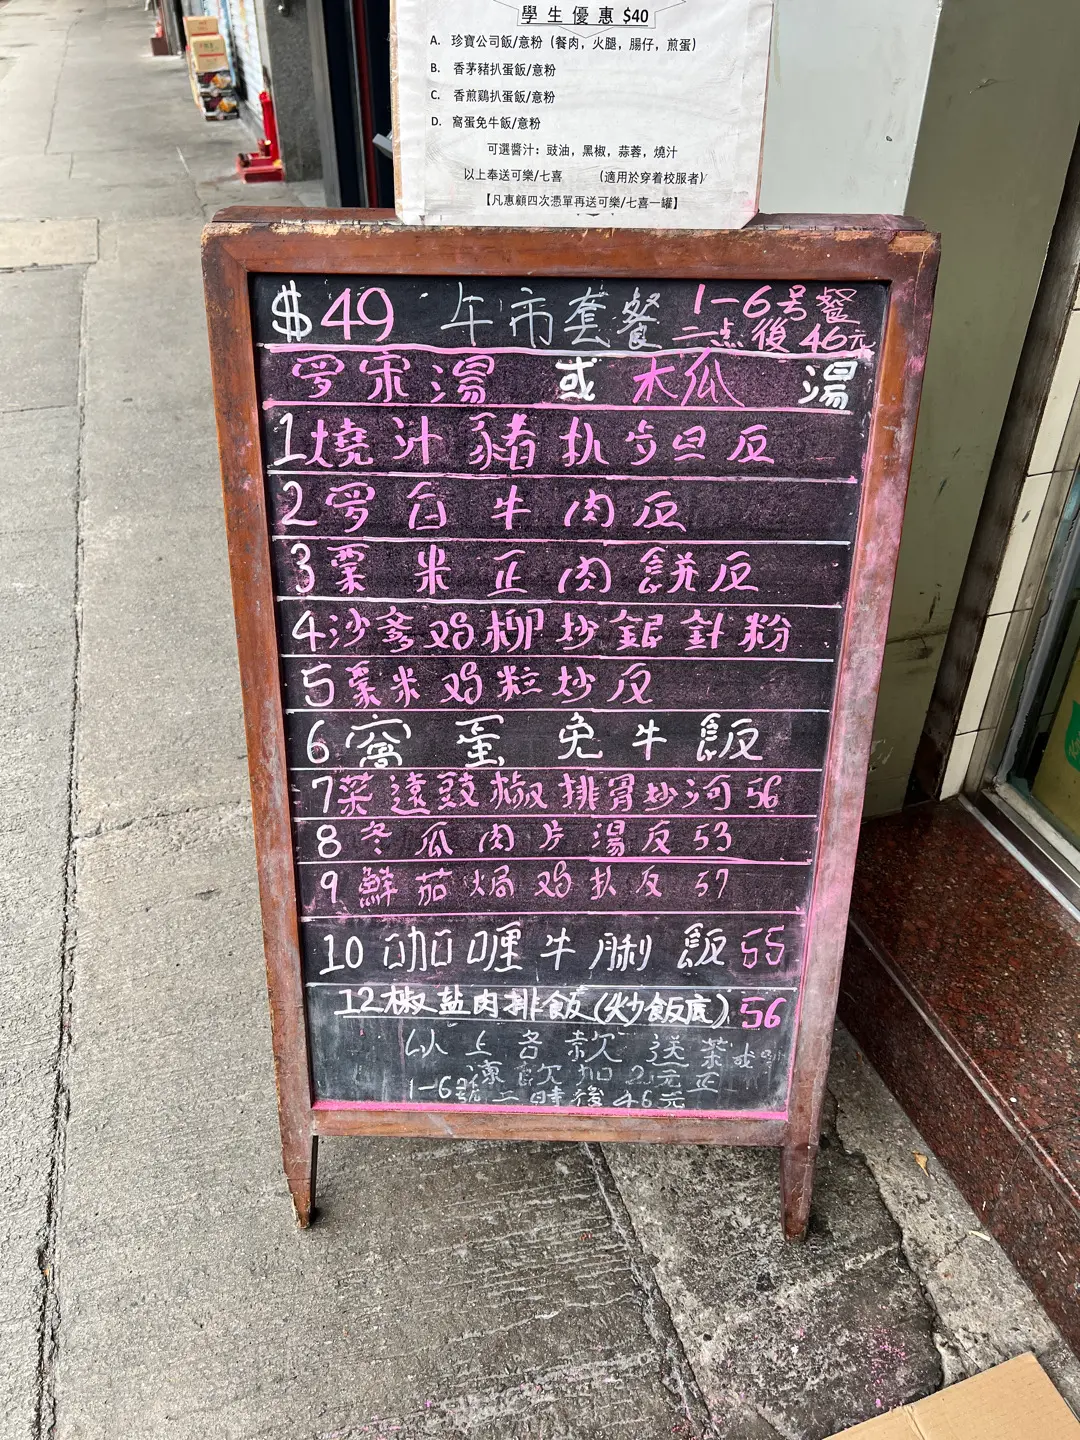 學生優惠 $40
A. 珍寶公司飯/意粉（餐肉，火腿，腸仔，煎蛋）
B. 香茅豬扒蛋飯/意粉
C. 香煎鷄扒蛋飯/意粉
D. 窩蛋免牛飯/意粉
可選醬汁：豉油，黑椒，蒜蓉，燒汁
以上奉送可樂/七喜 （適用於穿着校服者）
【凡惠顧四次憑單再送可樂/七喜一罐】
$49 午市套餐 1-6号餐
二点後 46元
罗宋湯 或 木瓜 湯
1燒汁豬扒歩旦反
2罗白牛肉反
3粟米正肉餅反
4沙爹鸡柳炒銀針粉
5粟米鸡粒炒反
6窩蛋免牛飯
7菜遠豉椒排骨炒河 56
8冬瓜肉片湯反 53
9鮮茄焗鸡扒反 57
10咖喱牛脷飯 55
12椒盐肉排飯(炒飯底) 56
以上各款送茶或
凍飲加2元正
1-6號二時後46元